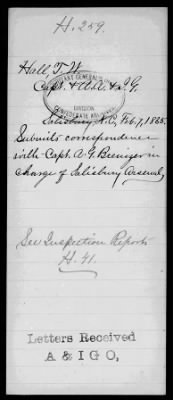 H. 259.
Hall, T. W.
Capt. & A.A. & I.G.
ADJUTANT GENERAL'S
DIVISION
CONFEDERATE ARCHIVES
Salisbury N.C., Feb. 7, 1865.
Submits correspondence
with Capt. A. G. Brenizer in
charge of Salisbury Arsenal.
See Inspection Report
H. 41.
Letters Received
A & I G O,